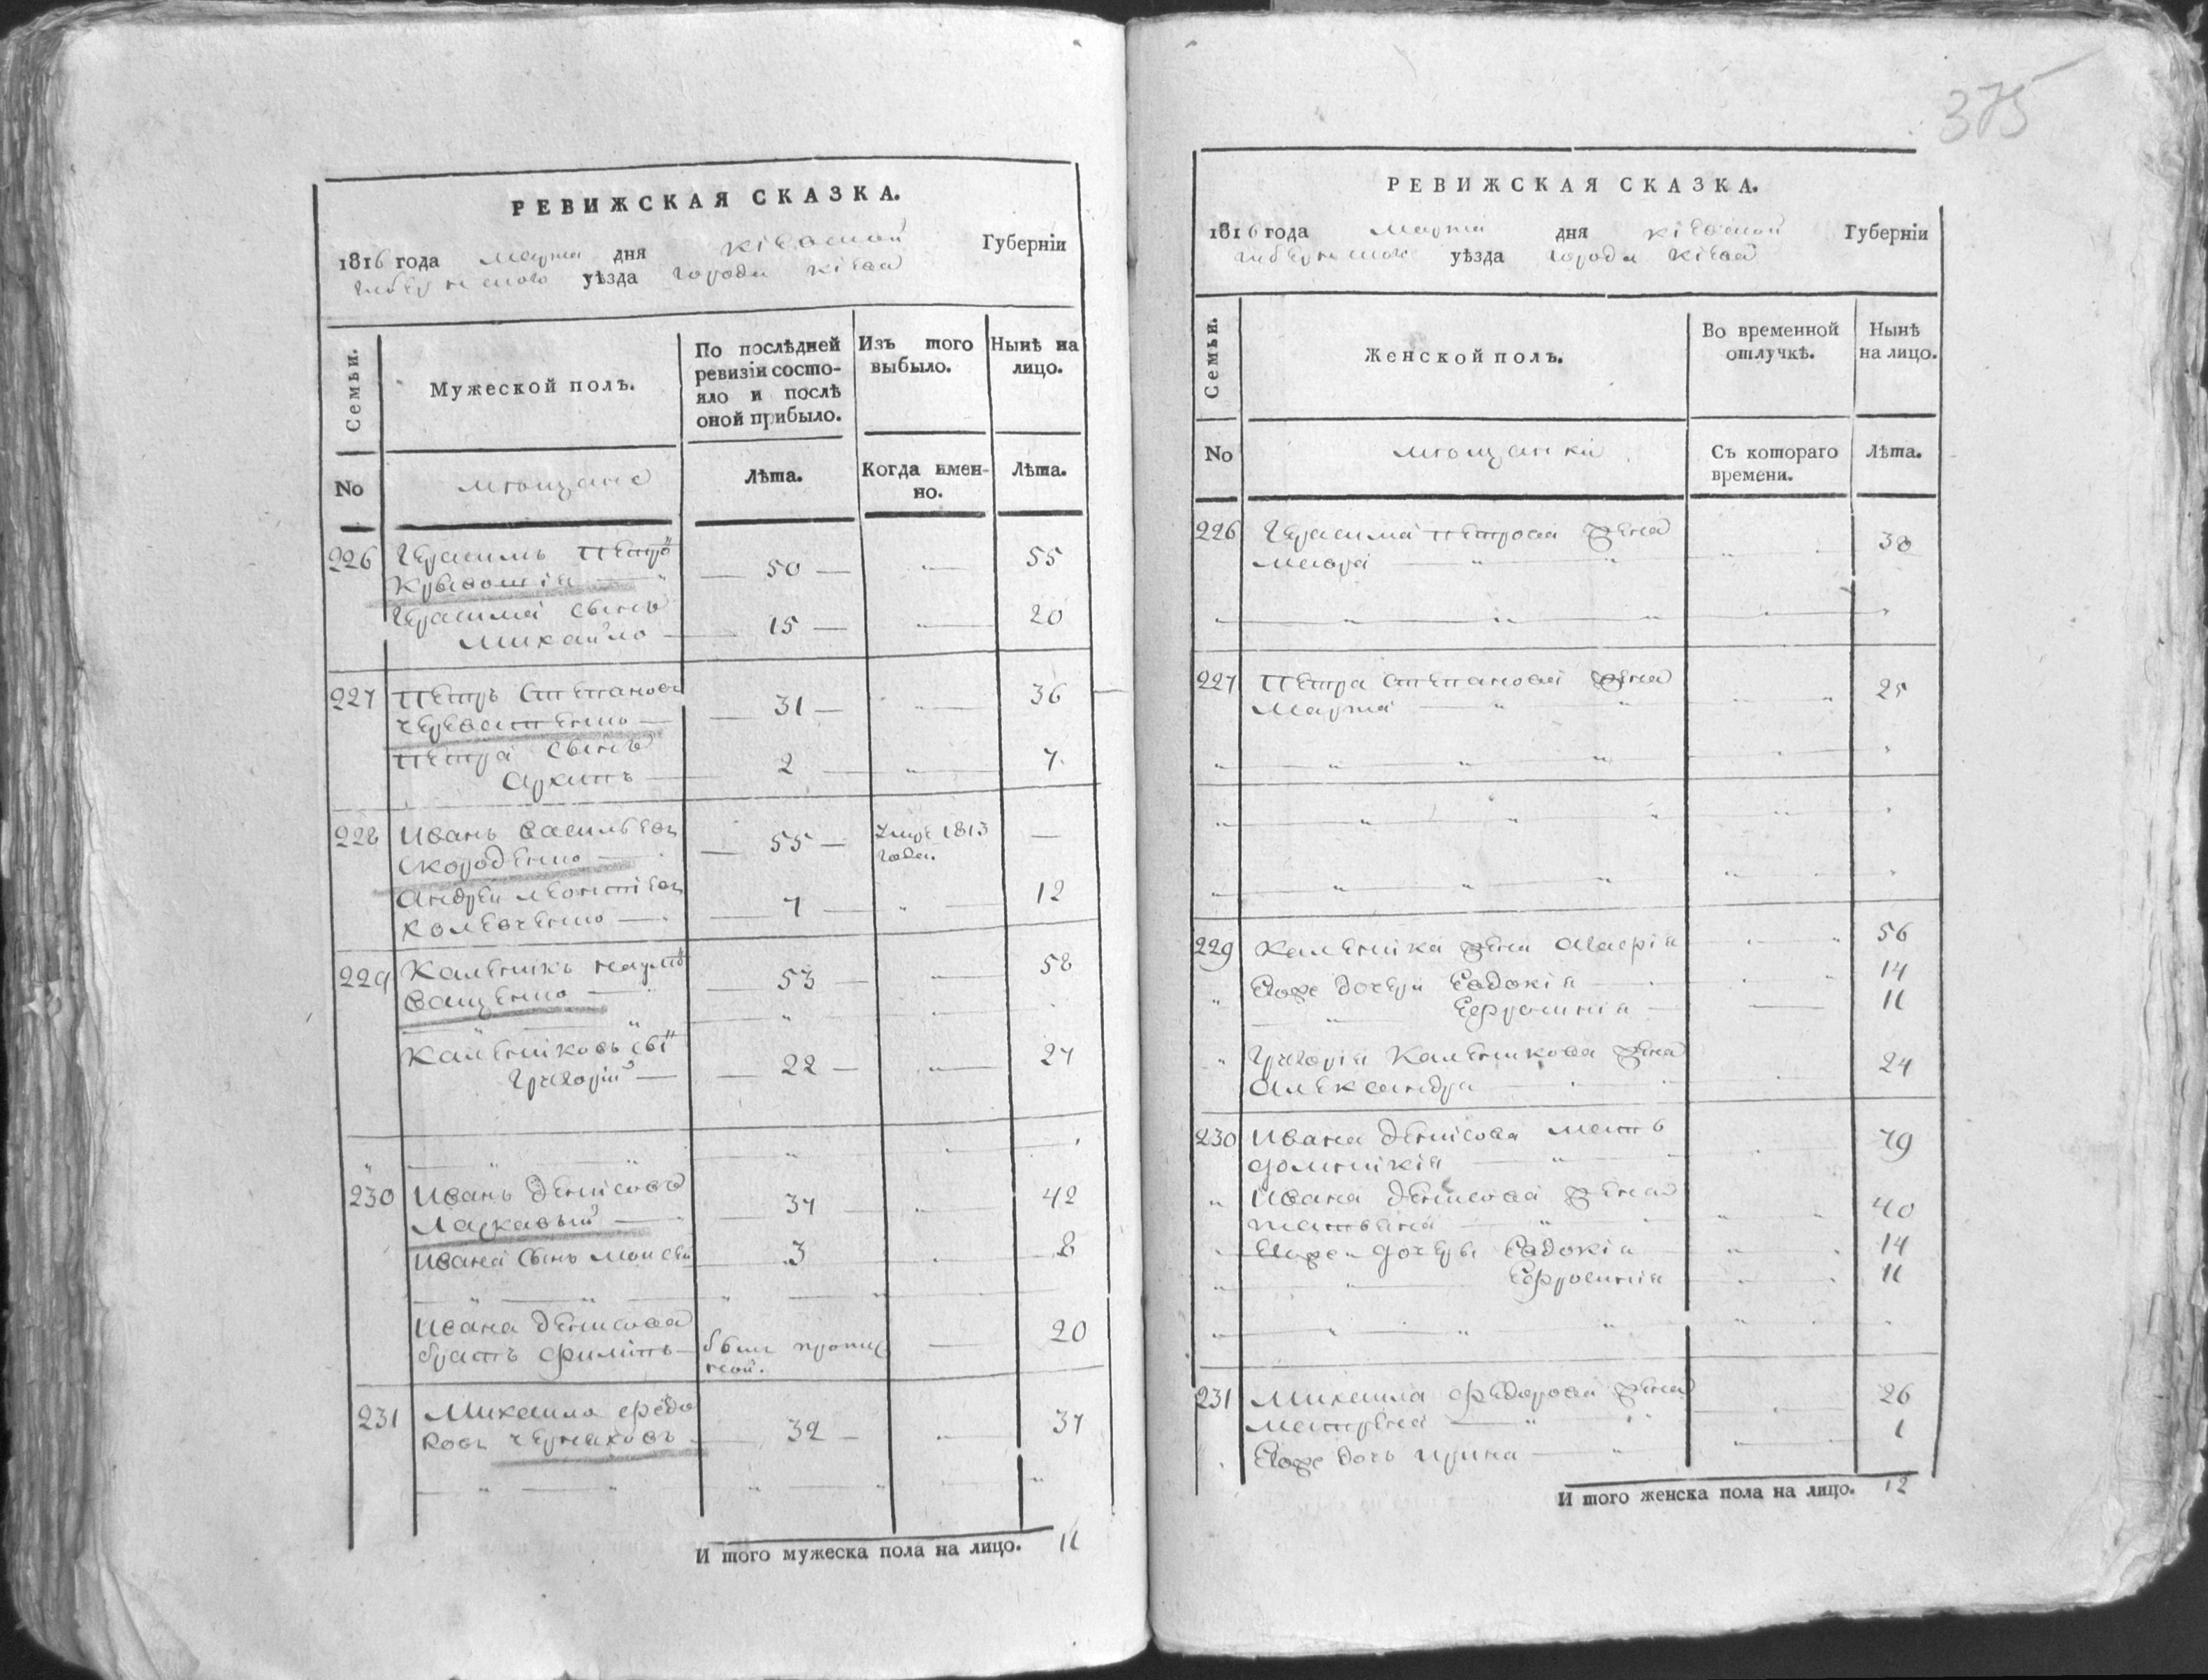 375
РЕВИЖСКАЯ СКАЗКА.
1816 года марта дня Кіевской Губерніи
уѣзда города Кіева
Семьи.
Мужеской полъ.
По послѣдней ревизіи состояло и послѣ оной прибыло.
Изъ того выбыло.
Нынѣ на лицо.
No
мѣщане
Лѣта.
Когда имен-
но.
Лѣта.
226 Герасимъ Петро
50 55
Герасима сынъ
Михайло 15 20
227 Петръ Степановъ
31 36
Петра сынъ
Архипъ 2 7
228 Иванъ Васильевъ 55 1813
Скороденко года.
Андрей Леонтіевъ
7 12
229 Каленикъ Наумо
Ващенко 53 58
Калениковъ сы
Григорій 22 27
230 Иванъ Денисовъ
Ларкавый 37 42
Ивана сынъ Моисей 3 8
Ивана Денисова
братъ Филипъ былъ пропис
ной. 20
231 Михаила Федо
ровъ Черняховъ 32 37
И того мужеска пола на лицо. 11
РЕВИЖСКАЯ СКАЗКА.
1816 года марта дня Кіевской Губерніи
уѣзда города Кіева
Семьи.
Женской полъ.
Во временной отлучкѣ.
Нынѣ на лицо.
No
мѣщанки
Съ котораго
времени.
Лѣта.
226 Герасима Петрова жена
Мавра 38
227 Петра Степанова жена
Марта 25
229 Каленика жена Марія 56
Егоже дочери Евдокія 14
Ефросинія 11
Григорія Каленикова жена
Александра 24
230 Ивана Денисова мать
Домникія 79
Ивана Денисова жена
Татьяна 40
дочеры Евдокія 14
Ефросинія 11
231 Михаила Федорова жена
Матрена 26
Егоже дочь Ирина 1
И того женска пола на лицо. 12